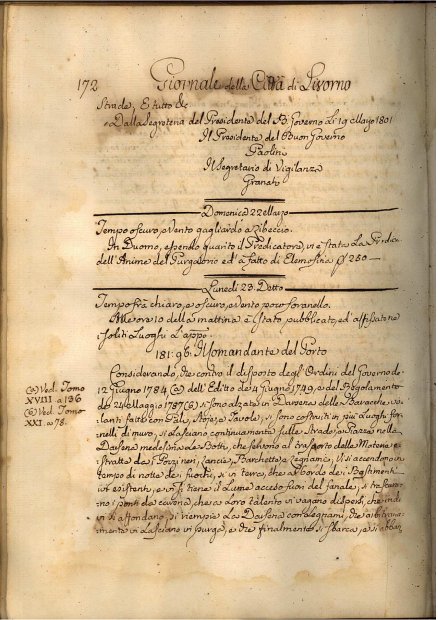 172
Giornale della Città di Livorno
Strade, E tutto &c
Dalla Segreteria del Presidente del B. Governo Li 19 Marzo 1801
Il Presidente del Buon Governo
Paolini
Il Segretario di Vigilanza
Granati
Domenica 22 Marzo
Tempo oscuro, e Vento gagliardo a Libeccio
In Duomo, essendo guarito il Predicatore, vi è stata La Predica
dell'Anime del Purgatorio ed'a fatto di Elemosina 250
Lunedi 23. Detto
Tempo frà chiaro, e oscuro, e Vento poco foranello.
Alle ore 10 della mattina è stato pubblicato, ed affissato ne
soliti Luoghi L'appo.
181. 96. Il Comandante del Porto
Considerando, che contro il disposto degl'Ordini del Governo de
12 Giugno 1784 (a) dell'Editto de 4 Giugno 1749, e del Regolamento
de 24 Maggio 1787 (b) si sono alzate in Darsena delle Baracche vo-
lanti fatte con Pali, Stoje, e Tavole, si sono costruiti in più Luoghi for-
nelli di muro, si Lasciano continuamente sulle Strade, e Piazze nella
Darsena medesima le Botti, che servono al trasporto delle Materie e-
stratte da Pozzi neri, Lancie, Barchette, e Legnami, Vi si accendono in
tempo di notte de fuochi, si in terra, che al bordo de i Bastimenti
ivi esistenti, e si tiene il Lume acceso fuori del fanale, si trascura-
no i ponti da cavana, che a Loro talento vi vagano dispersi, che indi
vi si affondano, si riempie La Darsena con Legnami, che arbitraria-
mente vi Lasciano vi purga, e che finalmente si sbarca, e si abban
(a) Ved. Tomo
XVIII a 136
(b) Ved. Tomo
XXI. a 78.